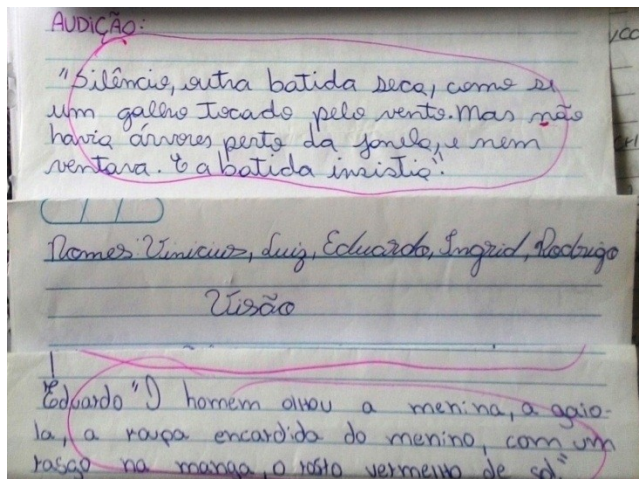 AUDIÇÃO:
"Silêncio, outra batida seca, como se
um galho tocado pelo vento. Mas não
havia árvores perto da janela, e nem
ventava. E a batida insistia".
Nomes: Vinicius, Luiz, Eduardo, Ingrid, Rodrigo
Visão
Eduardo "O homem olhou a menina, a gaio-
la, a roupa encardida do menino, com um
rasgo na manga, o rosto vermelho de sol."